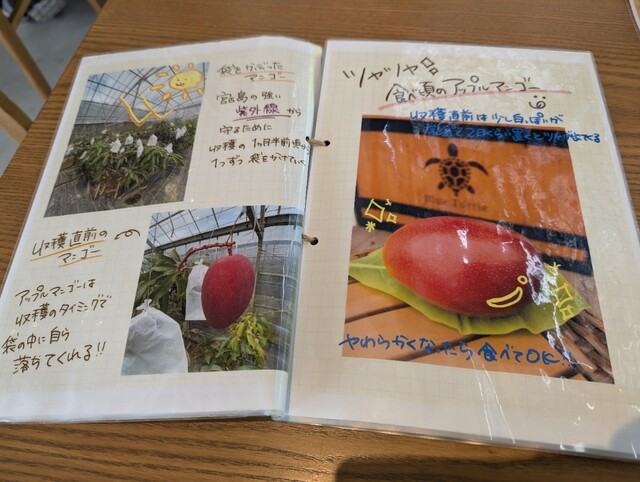 袋をかぶった
マンゴー
宮島の強い
紫外線から
守るために
収穫の1ヵ月半前頃から
1つずつ袋をかけていく
収穫直前の
マンゴー
アップルマンゴーは
収穫のタイミングで
袋の中に自ら
落ちてくれる!!
ツヤツヤ
食べ頃のアップルマンゴー
収穫直前は少し白っぽいが
Blue Turtle
やわらかくなったら食べてOK